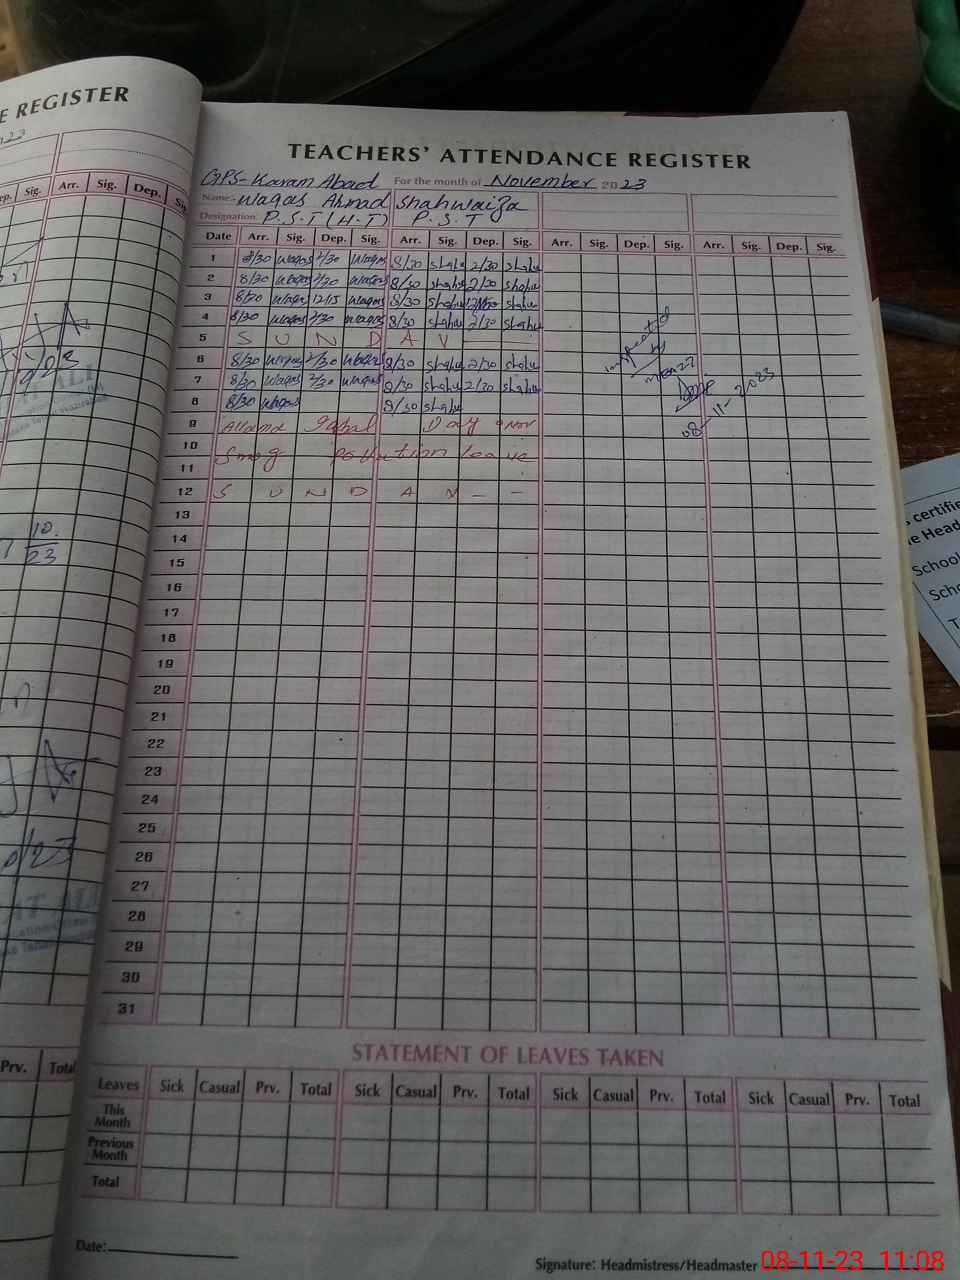 E REGISTER
TEACHERS' ATTENDANCE REGISTER
GPS-Karam Abad For the month of November 2023
Name:- Waqas Ahmad Shahwaiza
Designation: P.S.T (H.T) P.S.T
Date Arr. Sig. Dep. Sig. Arr. Sig. Dep. Sig. Arr. Sig. Dep. Sig. Arr. Sig. Dep. Sig.
1 8/30 Waqas 2/30 Waqas 8/30 Shahw 2/30 Shahw
2 8/30 Waqas 2/30 Waqas 8/30 Shahw 2/30 Shahw
3 8/30 Waqas 12/15 Waqas 8/30 Shahw Shahw
4 8/30 Waqas 2/30 Waqas 8/30 Shahw 2/30 Shahw
5 S U N D A Y
6 8/30 Waqas 2/30 Waqas 8/30 Shahw 2/30 Shahw
7 8/30 Waqas 2/30 Waqas 8/30 Shahw 2/30 Shahw
8 8/30 Waqas 8/30 Shahw
inspected
by
08-11-2023
9 Allama Iqbal Day 9 Nov
10 Smog pollution leave
11
12 S U N D A Y - -
13
14
15
16
17
18
19
20
21
22
23
24
25
26
27
28
29
30
31
STATEMENT OF LEAVES TAKEN
Leaves Sick Casual Prv. Total Sick Casual Prv. Total Sick Casual Prv. Total Sick Casual Prv. Total
This
Month
Previous
Month
Total
Date:
Signature: Headmistress/Headmaster
08-11-23 11:08
Sig. Arr. Sig. Dep. Sig.
10.
23
Prv. Total
certifie
e Head
School
Scho